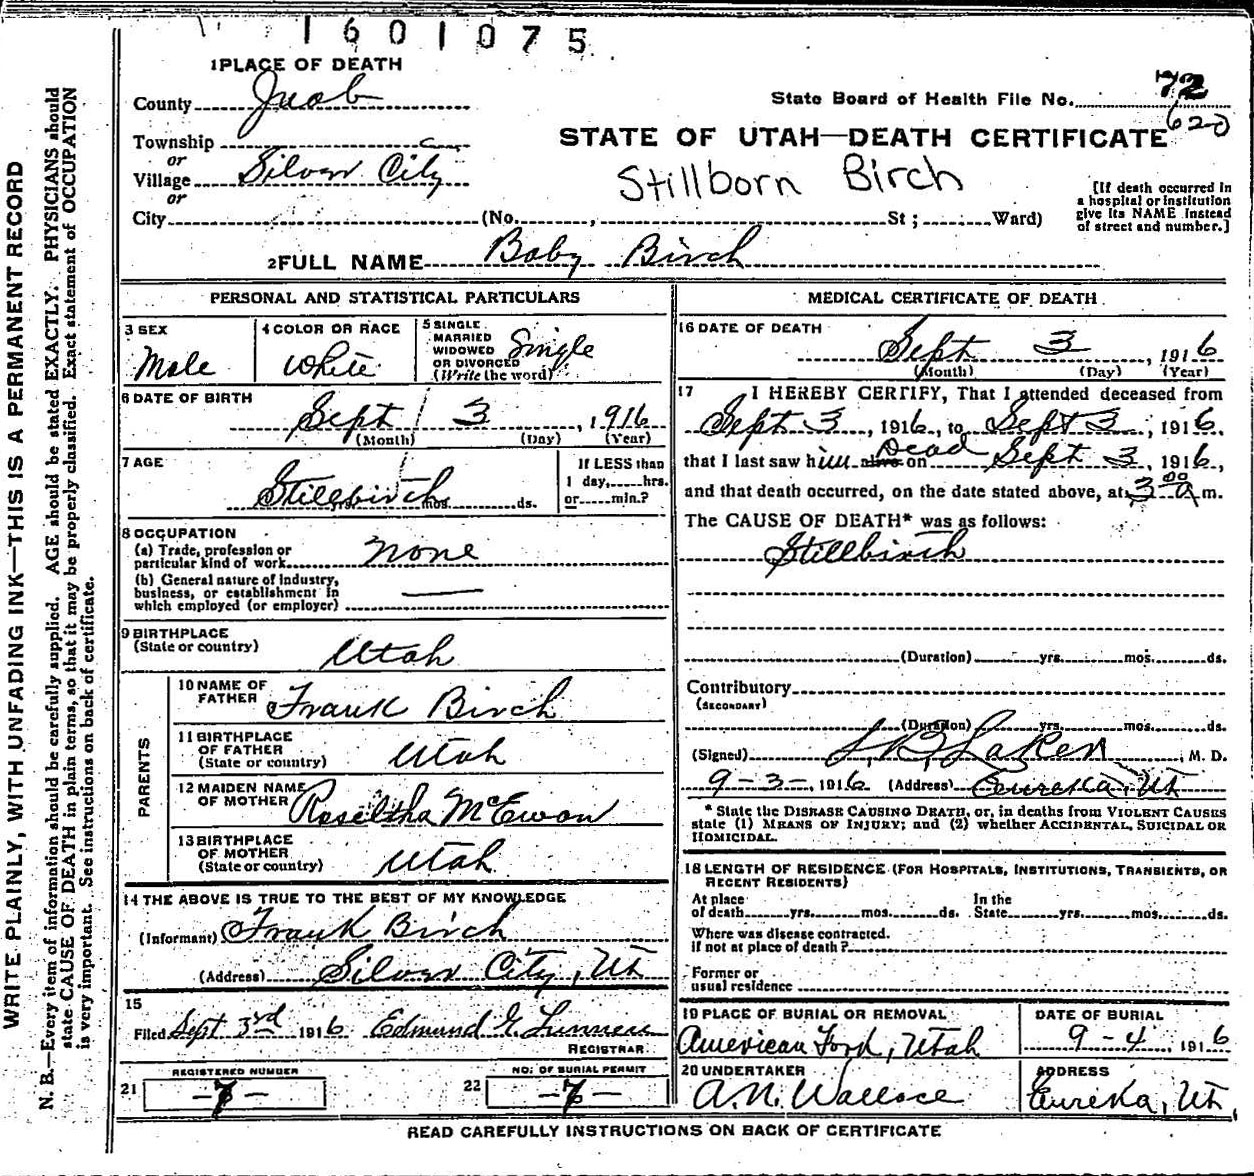 1601075
1 PLACE OF DEATH
County Juab
State Board of Health File No. 72
620
Township
or
Village Silver City
or
STATE OF UTAH—DEATH CERTIFICATE
Stillborn Birch
[If death occurred in
a hospital or institution
give its NAME instead
of street and number.]
City (No. , St ; Ward)
2 FULL NAME Baby Birch
PERSONAL AND STATISTICAL PARTICULARS
3 SEX
Male
4 COLOR OR RACE
White
5 SINGLE
MARRIED
WIDOWED
OR DIVORCED
(Write the word)
Single
6 DATE OF BIRTH
Sept 3, 1916
(Month) (Day) (Year)
7 AGE
Stillbirth
yrs. mos. ds.
If LESS than
1 day, hrs.
or min.?
8 OCCUPATION
(a) Trade, profession or
particular kind of work none
(b) General nature of industry,
business, or establishment in
which employed (or employer) —
9 BIRTHPLACE
(State or country)
Utah
PARENTS
10 NAME OF
FATHER
Frank Birch
11 BIRTHPLACE
OF FATHER
(State or country)
Utah
12 MAIDEN NAME
OF MOTHER
McEwan
13 BIRTHPLACE
OF MOTHER
(State or country)
Utah
14 THE ABOVE IS TRUE TO THE BEST OF MY KNOWLEDGE
(Informant) Frank Birch
(Address) Silver City, Ut
15
Filed Sept 3rd 1916 Edmund
REGISTRAR
21 REGISTERED NUMBER
—7—
22 NO. OF BURIAL PERMIT
—7—
MEDICAL CERTIFICATE OF DEATH
16 DATE OF DEATH
Sept 3, 1916
(Month) (Day) (Year)
17 I HEREBY CERTIFY, That I attended deceased from
Sept 3, 1916, to Sept 3, 1916.
that I last saw him alive Dead on Sept 3, 1916,
and that death occurred, on the date stated above, at 3 00 a m.
The CAUSE OF DEATH* was as follows:
Stillbirth
(Duration) yrs. mos. ds.
Contributory
(SECONDARY)
(Duration) yrs. mos. ds.
(Signed) Laker M. D.
9-3-, 1916 (Address) Eureka, Ut
* State the DISEASE CAUSING DEATH, or, in deaths from VIOLENT CAUSES
state (1) MEANS OF INJURY; and (2) whether ACCIDENTAL, SUICIDAL OR
HOMICIDAL.
18 LENGTH OF RESIDENCE (FOR HOSPITALS, INSTITUTIONS, TRANSIENTS, OR
RECENT RESIDENTS)
At place
of death yrs. mos. ds.
In the
State yrs. mos. ds.
Where was disease contracted.
if not at place of death?
Former or
usual residence
19 PLACE OF BURIAL OR REMOVAL
American Ford, Utah
DATE OF BURIAL
9-4, 1916
20 UNDERTAKER
A.N. Wallace
ADDRESS
Eureka, Ut,
READ CAREFULLY INSTRUCTIONS ON BACK OF CERTIFICATE
WRITE PLAINLY, WITH UNFADING INK—THIS IS A PERMANENT RECORD
N. B.—Every item of information should be carefully supplied. AGE should be stated EXACTLY. PHYSICIANS should
state CAUSE OF DEATH in plain terms, so that it may be properly classified. Exact statement of OCCUPATION
is very important. See instructions on back of certificate.